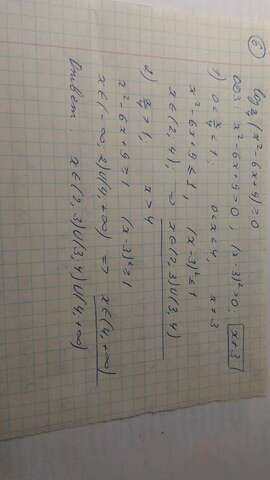 ⑥
log x/4 (x²-6x+9)≥0
ОДЗ: x²-6x+9>0, (x-3)²>0, x≠3
1) 0<x/4<1, 0<x<4, x≠3
x²-6x+9≤1, (x-3)²≤1
x∈(2,4), ⇒ x∈(2,3)∪(3,4)
2) x/4>1, x>4
x²-6x+9≥1 (x-3)²≥1
x∈(-∞,2)∪(4,+∞) ⇒ x∈(4,+∞)
Ответ x∈(2,3)∪(3,4)∪(4,+∞)